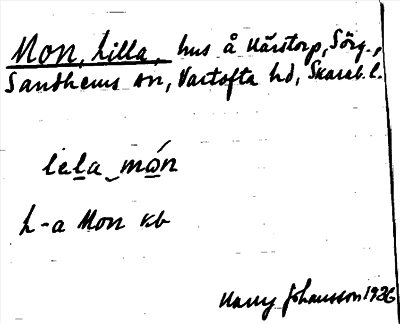 Mon, Lilla, hus å Kärstorp, Sörg.,
Sandhems sn, Vartofta hd, Skarab. l.
lela món
L-a Mon kb
Harry Johansson 1926